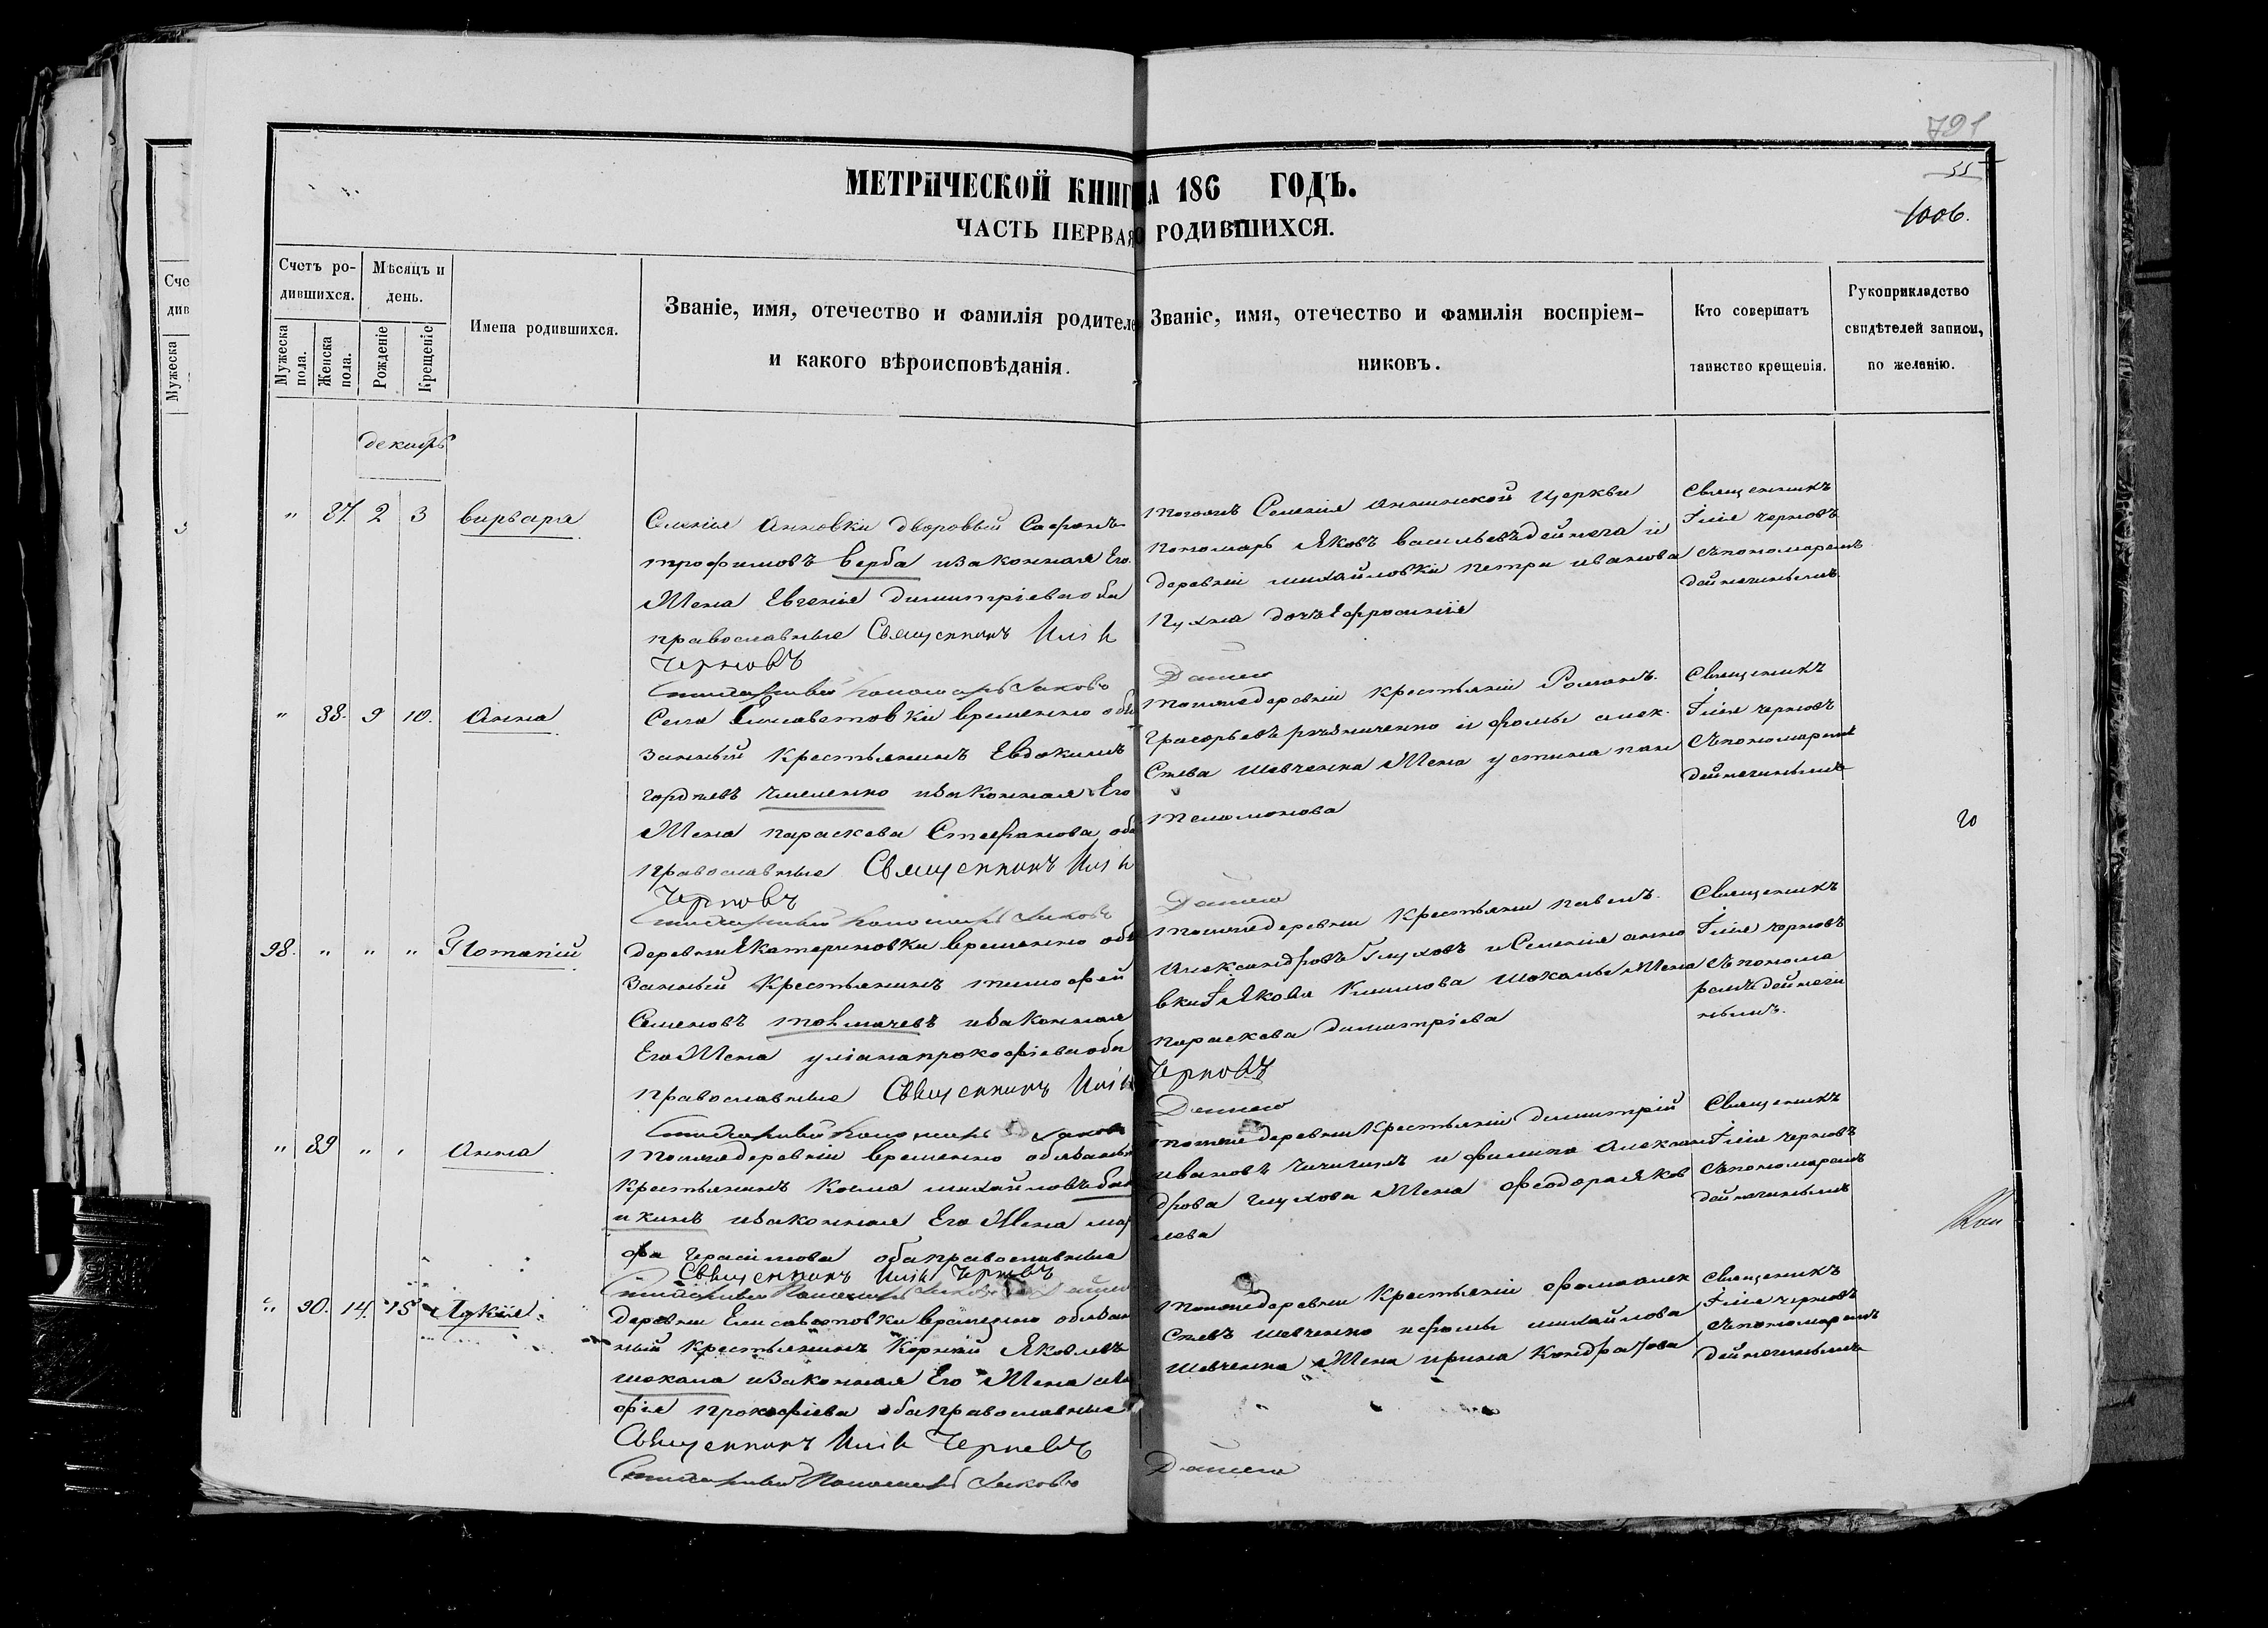 791
55
1006.
МЕТРИЧЕСКОЙ КНИГ А 186 ГОДЪ.
ЧАСТЬ ПЕРВАЯ О РОДИВШИХСЯ.
Счетъ ро-
дившихся.
Мужеска
пола.
Женска
пола.
Мѣсяцъ и
день.
Рожденіе
Крещеніе
Имена родившихся.
Званіе, имя, отечество и фамилія родителе
и какого вѣроисповѣданія.
Званіе, имя, отечество и фамилія воспріем-
никовъ.
Кто совершатъ
таинство крещенія.
Рукоприкладство
свидѣтелей записи,
по желанію.
Сче
див
Мужеска
декабрь
" 87. 2 3 варвара
Селенія Анновки дворовый Сафонъ
трофимовъ верба изаконная Его
Жена Евгенія димитріева оба
православные Священникъ Илія
Черновъ
Пономарь Яковъ
тогожъ Селенія аннинской Церкви
пономарь Яковъ васильевъ дейнега и
деревни михайловки петра иванова
дочь Ефросинія
Священникъ
Ілія черновъ
съпономаремъ
дейнегинымъ
" 88. 9 10. Анна
Села Елисаветовки временно обя
занный Крестьянинъ Евдокимъ
гордѣевъ изаконная Его
Жена параскева Стефанова оба
православные Священникъ Илія
Черновъ
Пономарь Яковъ
тойжедеревніи крестьяніи Романъ
Григорьевъ и фомы алек
Сѣева шевченка Жена устина пан
телимонова
Священикъ
Ілія черновъ
Съпономаремъ
дейнегинымъ
20
98. " " " Потапій
деревни Екатериновки временно обя
занный Крестьянинъ тимофей
Семеновъ толмачевъ изаконная
Его Жена уліана прокофіева оба
православные Священникъ Илія
Черновъ
Пономарь Яковъ
тойжедеревни Крестьяни павелъ
Александровъ Глуховъ и Селенія анно
вки Якова Климова шокалы Жена
параскева димитріева
Священикъ
Ілія черновъ
съпонома
ремъ дейнеги
нымъ.
" 89 " " Анна
тойжедеревніи временно обязанны
Крестьянинъ Косма михайловъ
изаконная Его Жена мар
фа герасимова оба православные
Священникъ Илія Черновъ
Пономарь
тойже деревни Крестьяніи димитрій
ивановъ чичигинъ и филипа Алексан
дрова глухова Жена феодора Яков
лева
Священикъ
Ілія черновъ
съпономаремъ
дейнегинымъ
" 90. 14. 15 Лукія
деревни Елисаветовки временно обязан
ный Крестьянинъ Корній Яковлевъ
шокала изаконная Его Жена
фія прокофіева оба православные
Священникъ Илія Черновъ
Пономарь Яковъ
тойжедеревни Крестьяніи фома алек
Сѣевъ шевченко и фомы михайлова
шевченка Жена ирина Кондратова
Священикъ
Ілія черновъ
съпономаремъ
дейнегинымъ